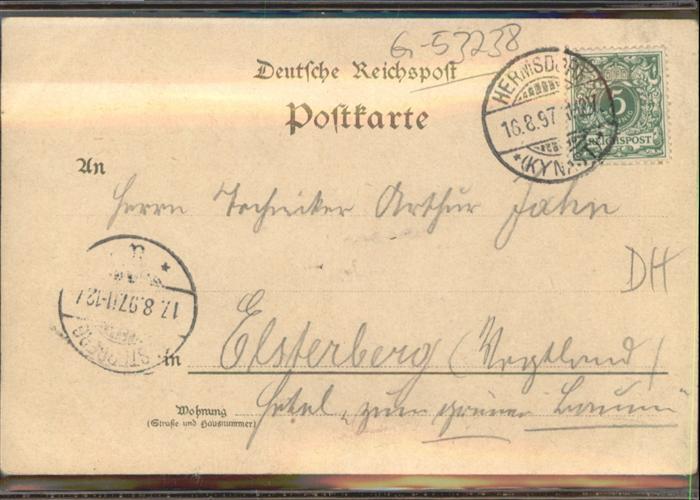 G-53238
Deutsche Reichspost
Postkarte
HERMSDORF
16.8.97
(KYNAST)
5
REICHSPOST
An
Herrn Techniker Arthur Jahn
DH
17.8.97 11-12
ELSTERBERG
in Elsterberg (Vogtland)
Wohnung Hotel „zum grünen Baum"
(Straße und Hausnummer)